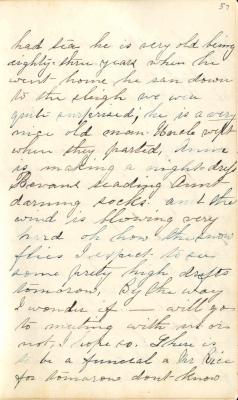 57
had tea, he is very old being
eighty-three years when he
went home he ran down
to the sleigh we were
quite surprised, he is a very
nice old man. Uncle wept
when they parted, Annie
is making a night-dress
reading Aunt
darning socks. and the
wind is blowing very
hard oh how the snow
flies I expect to see
some pretty high drifts
tomorrow, By the way
I wonder if — will go
to meeting with us or
not, I hope so. There is
to be a funeral a Mr Rice
for tomorrow dont know